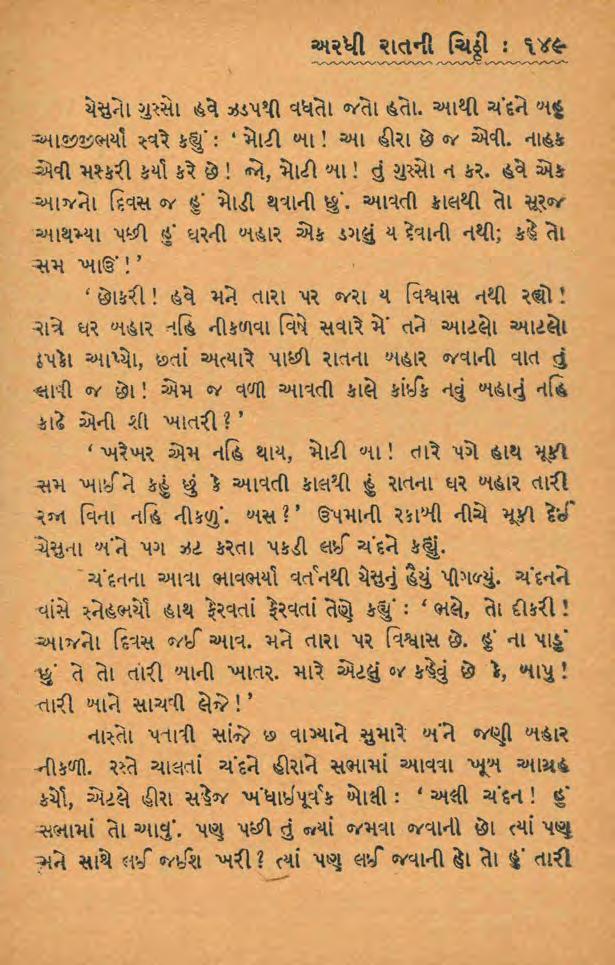 અરધી રાતની ચિઠ્ઠી : ૧૪૯
યેસુનો ગુસ્સો હવે ઝડપથી વધતો જતો હતો. આથી ચંદને બહુ
આજીજીભર્યા સ્વરે કહ્યું : ‘ મોટી બા ! આ હીરા છે જ એવી. નાહક
એવી મશ્કરી કર્યા કરે છે ! જો, મોટી બા ! તું ગુસ્સો ન કર. હવે એક
આજનો દિવસ જ હું મોડી થવાની છું. આવતી કાલથી તો સૂરજ
આથમ્યા પછી હું ઘરની બહાર એક ડગલું ય દેવાની નથી; કહે તો
સમ ખાઉં ! ’
‘ છોકરી ! હવે મને તારા પર જરા ય વિશ્વાસ નથી રહ્યો !
રાત્રે ઘર બહાર નહિ નીકળવા વિષે સવારે મેં તને આટલો આટલો
ઠપકો આપ્યો, છતાં અત્યારે પાછી રાતના બહાર જવાની વાત તું
લાવી જ છો ! એમ જ વળી આવતી કાલે કાંઈક નવું બહાનું નહિ
કાઢે એની શી ખાતરી ? ’
‘ ખરેખર એમ નહિ થાય, મોટી બા ! તારે પગે હાથ મૂકી
સમ ખાઈને કહું છું કે આવતી કાલથી હું રાતના ઘર બહાર તારી
રજા વિના નહિ નીકળું. બસ ? ’ ઉપમાની રકાબી નીચે મૂકી દેઈ
યેસુના બંને પગ ઝટ કરતા પકડી લઈ ચંદને કહ્યું.
ચંદનના આવા ભાવભર્યા વર્તનથી યેસુનું હૈયું પીગળ્યું. ચંદનને
વાંસે સ્નેહભર્યો હાથ ફેરવતાં ફેરવતાં તેણે કહ્યું : ‘ ભલે, તો દીકરી !
આજનો દિવસ જઈ આવ. મને તારા પર વિશ્વાસ છે. હું ના પાડું
છું તે તો તારી બાની ખાતર. મારે એટલું જ કહેવું છે કે, બાપુ !
તારી બાને સાચવી લેજે ! ’
નાસ્તો પતાવી સાંજે છ વાગ્યાને સુમારે બંને જણી બહાર
નીકળી. રસ્તે ચાલતાં ચંદને હીરાને સભામાં આવવા ખૂબ આગ્રહ
કર્યો, એટલે હીરા સહેજ ખંધાઈપૂર્વક બોલી : ‘ અલી ચંદન ! હું
સભામાં તો આવું. પણ પછી તું જ્યાં જમવા જવાની છો ત્યાં પણ
મને સાથે લઈ જઈશ ખરી ? ત્યાં પણ લઈ જવાની હો તો હું તારી